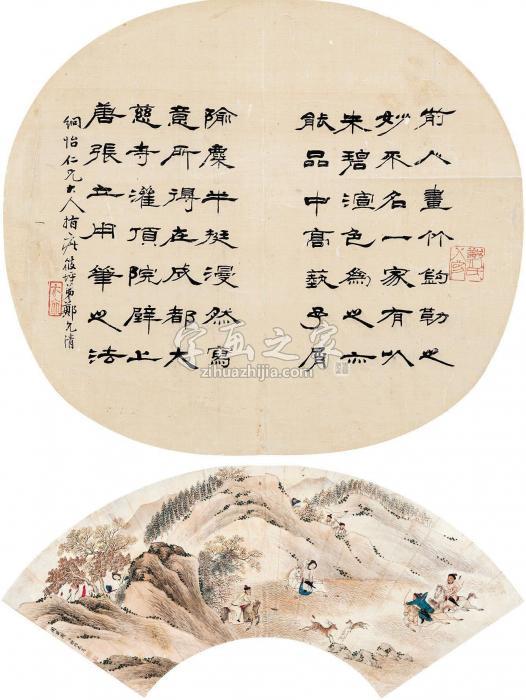 前人畫竹鉤勒之
妙不名一家有以
朱碧渲色為之亦
能品中高藝予屑
隃麋半挺漫然寫
意所得在成都大
慈寺灌頂院壁上
唐張立用筆之法
怡仁兄大人指疵筱坪弟鄭允清
字画之家
zihuazhijia.com